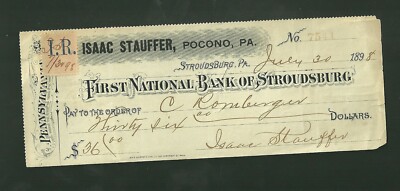 I.R.
7/30 98
ISAAC STAUFFER, POCONO, PA.
No.
STROUDSBURG, PA. July 30 1898
FIRST NATIONAL BANK OF STROUDSBURG
PENNSYLVANIA
PAY TO THE ORDER OF C Romberger
Thirty six 00 DOLLARS.
$36 00 Isaac Stauffer